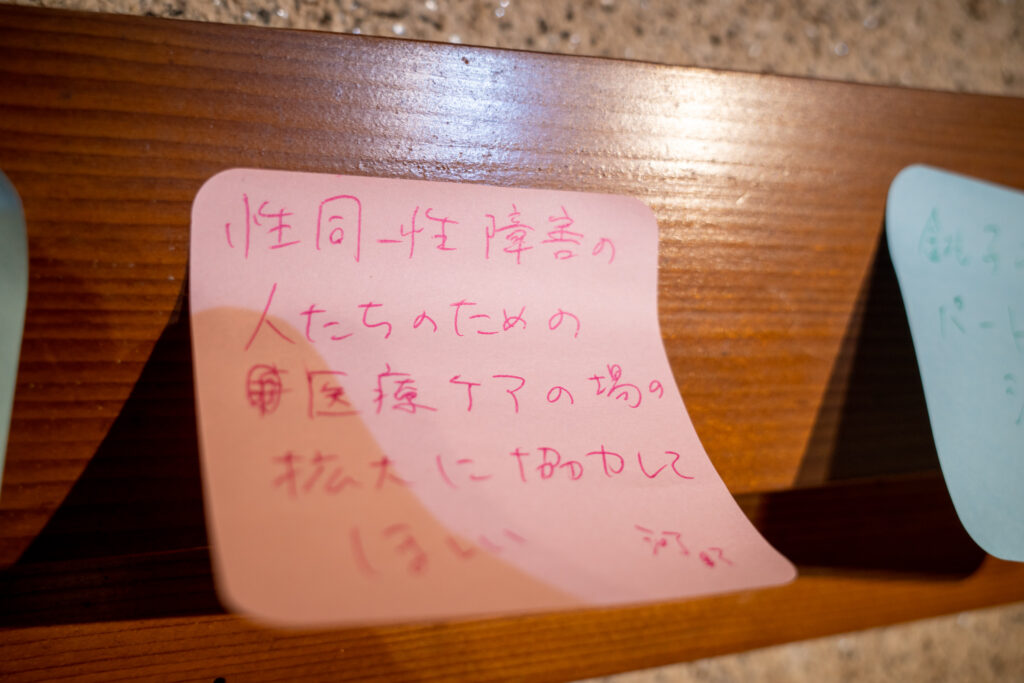 性同一性障害の
人たちのための
医療ケアの場の
拡大に協力して
ほしい
河野
銚子
パート